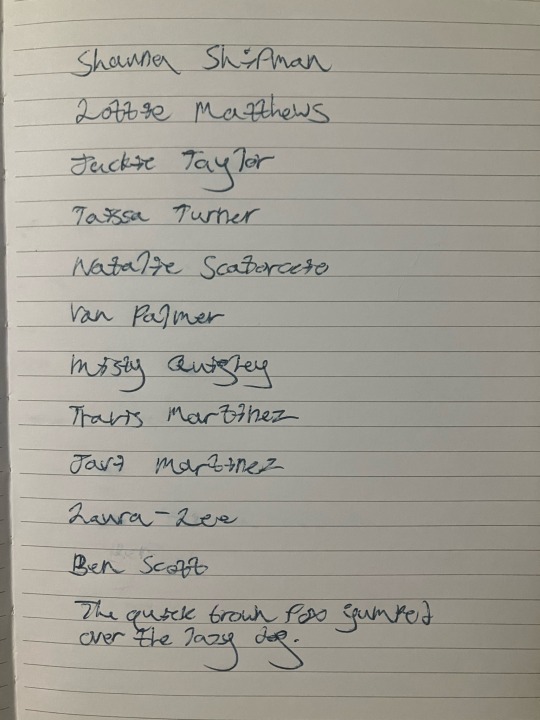 Shauna Shipman
Lottie Matthews
Jackie Taylor
Taissa Turner
Natalie Scatorccio
Van Palmer
Misty Quigley
Travis Martinez
Javi Martinez
Laura-Lee
Ben Scott
The quick brown fox jumped
over the lazy dog.